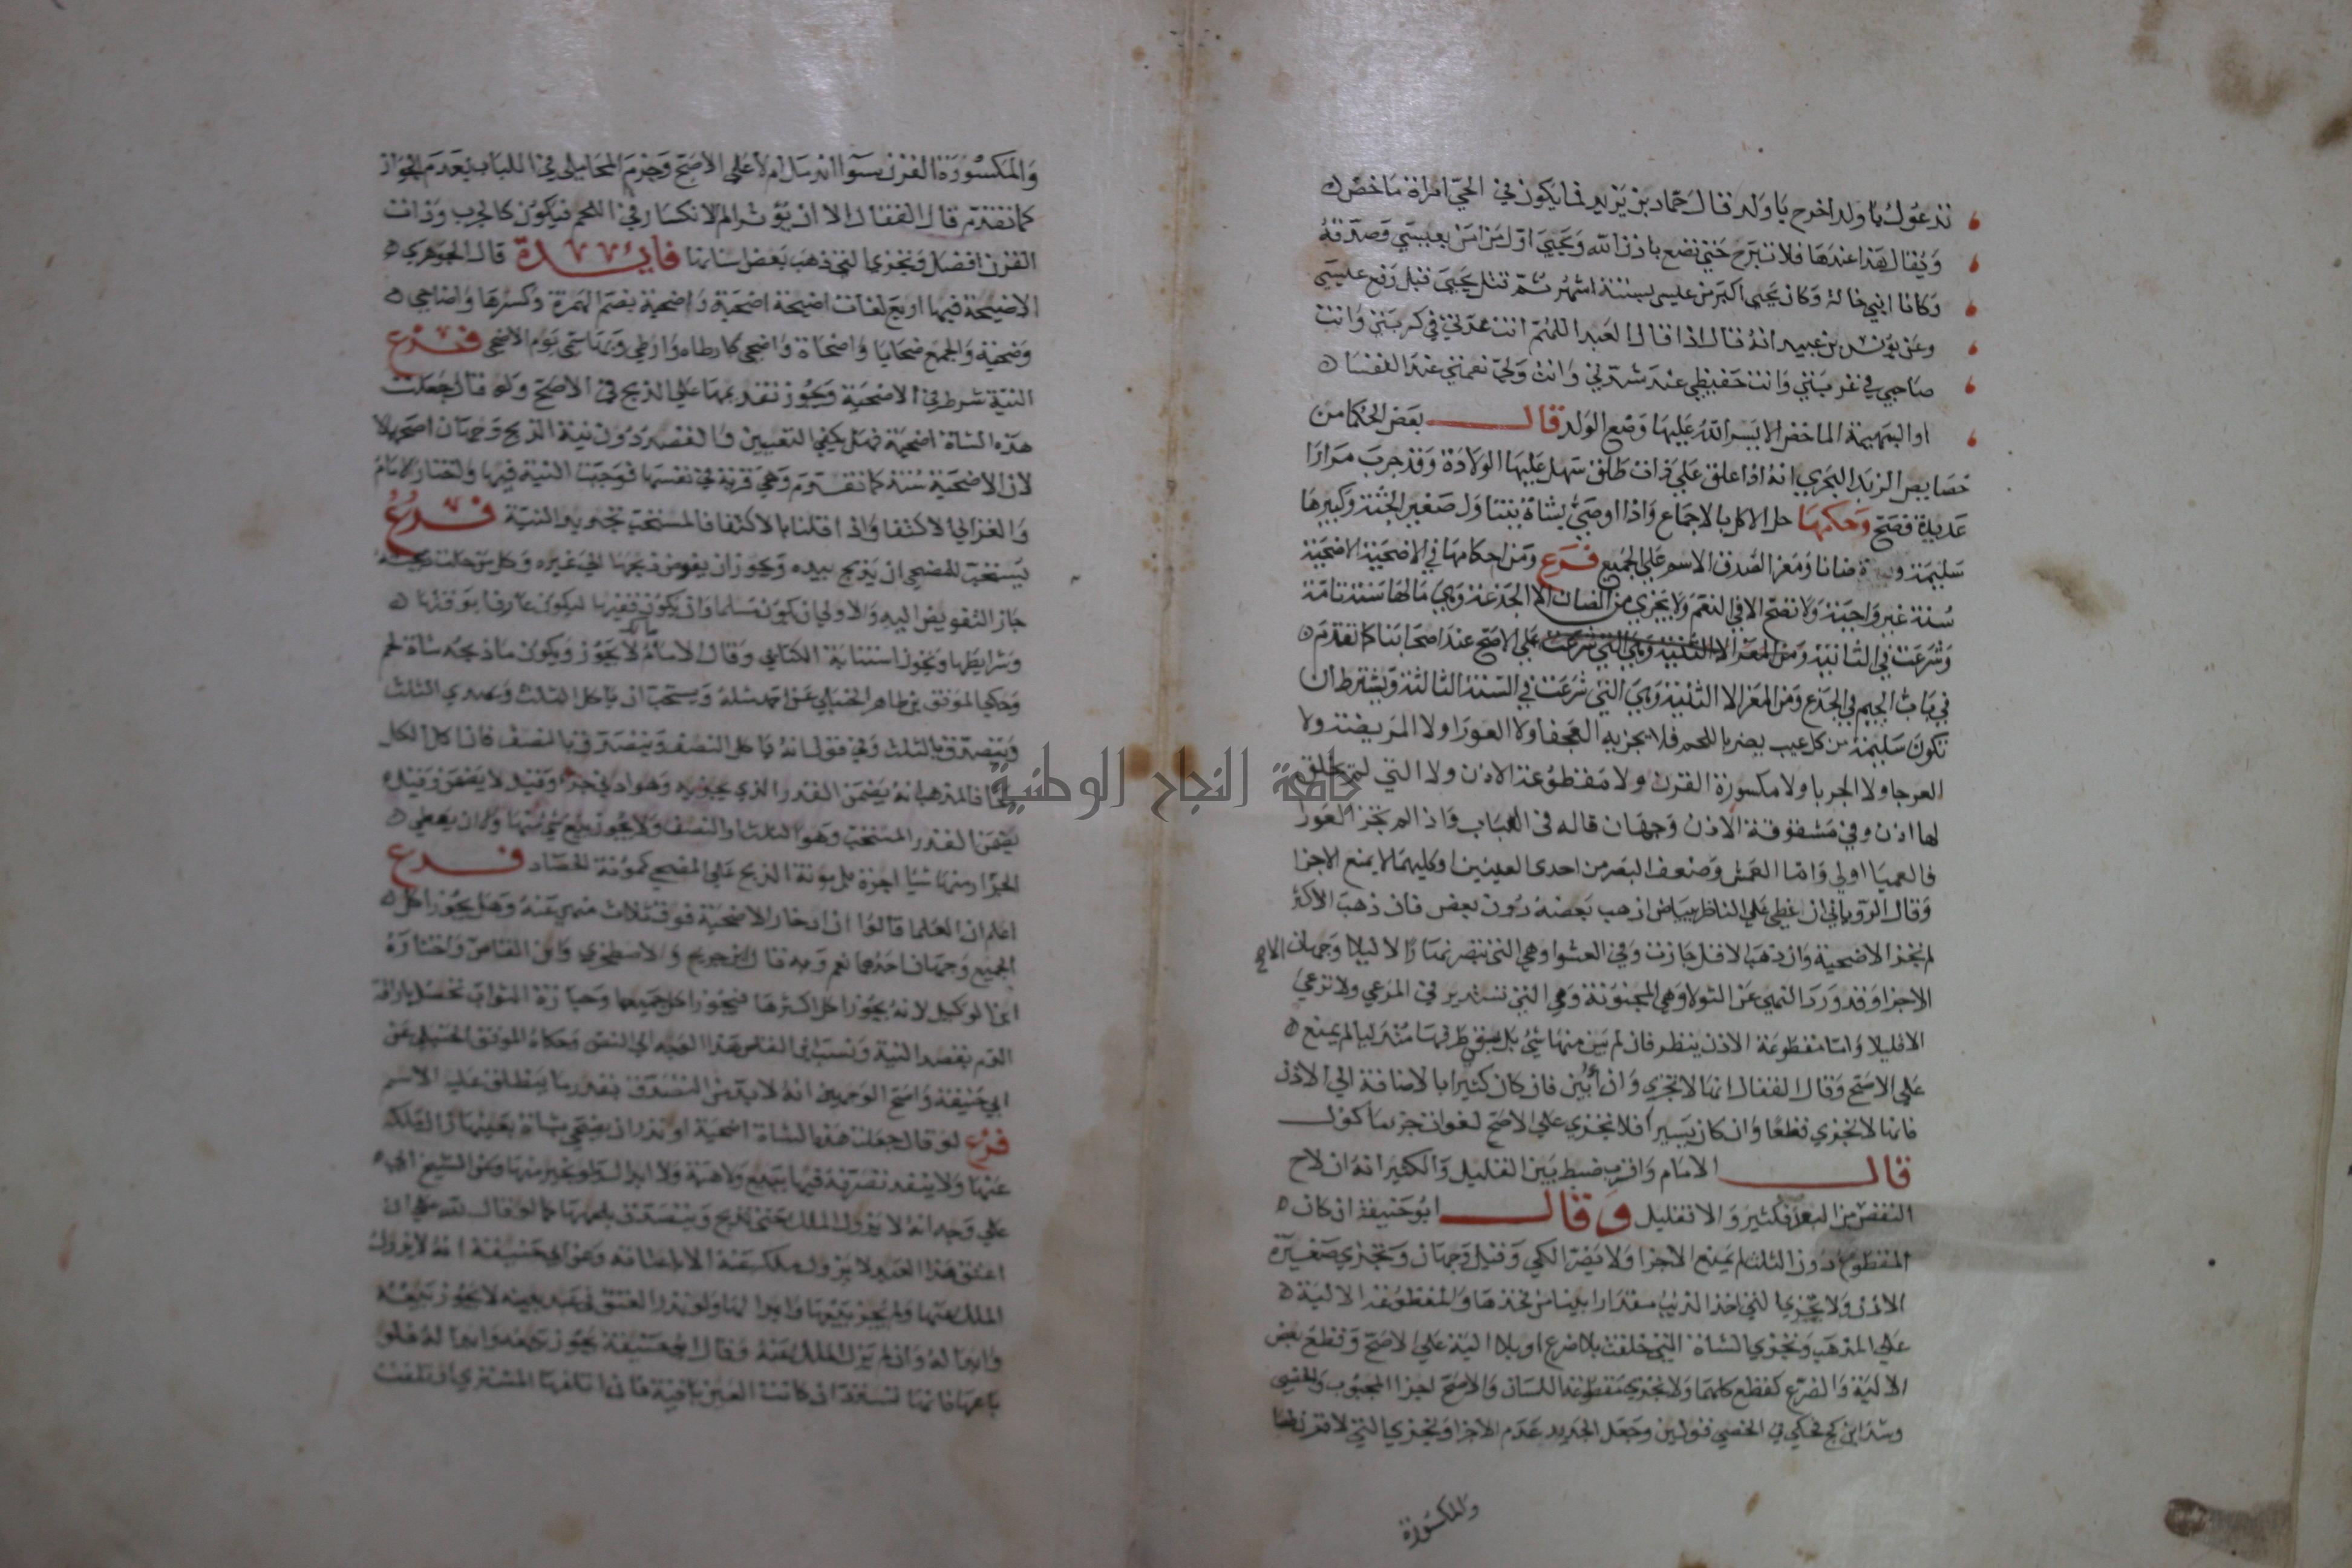 تدعوك يا ولد اخرج يا ولد قال حماد بن يزيد فما يكون في الحي امراة ماخض
ويقال هذا عندها فلا تبرح حتي تضع باذن الله ويحيي اول من امن بعيسي وصدقه
وكانا ابني خالة وكان يحيي اكبر من عليسي بستة اشهر ثم قتل يحيي قبل رفع عليسي
وعن يونس بن عبيد انه قال اذا قال العبد اللهم انت عدتي في كربتي وانت
صاحبي في غربتي وانت حفيظي عند شدتي وانت ولي نعمتي عند النفسا
او البهيمة الماخض الا يسر الله عليها وضع الولد قال بعض الحكما من
خصايص الزبد البحري انه اذا علق علي ذات طلق سهل عليها الولادة وقد جرب مرارا
عديدة فصح وحكمها حل الاكل بالاجماع واذا اوصي بشاة تناول صغير الجثة وكبيرها
سليمة ضانا ومعزا لصدق الاسم علي الجميع فرع ومن احكامها في الاضحية الاضحية
سنة غير واجبة ولا تصح الا في النعم ولا يجزي من الضان الا الجذعة وهي مالها سنة تامة
وشرعت في الثانية ومن المعز الا الثنية وهي التي شرعت علي الاصح عند اصحابنا كما تقدم
في باب الجيم في الجذع ومن المعز الا الثنية وهي التي شرعت في السنة الثالثة ويشترط ان
تكون سليمة من كل عيب يضر باللحم فلا يجزيه العجفا ولا العورا ولا المريضة ولا
العرجا ولا الجربا ولا مكسورة القرن ولا مقطوعة الاذن ولا التي لم يخلق
لها اذن وفي مشقوقة الاذن وجهان قاله في العباب واذا لم تجز العورا
فالعميا اولي واما العمش وضعف البصر من احدى العينين او كليهما لا يمنع الاجزا
وقال الروياني ان غطي علي الناظر بياض اذهب بعضه دون بعض فان ذهب الاكثر
لم تجز الاضحية وان ذهب الاقل جازت وفي العشوا وهي التي تبصر نهارا لا ليلا وجهان الاصح
الاجزا وقد ورد النهي عن التولا وهي المجنونة وهي التي تستدير في المرعي ولا ترعي
الا قليلا واما مقطوعة الاذن ينظر فان لم يبن منها شي بل بقي طرفها متدليا لم يمنع
علي الاصح وقال القفال انها لا تجزي وان أبين فان كان كثيرا بالاضافة الي الاذن
فانها لا تجزي قطعا وان كان يسيرا فلا تجزي علي الاصح لفوات جز ماكول
قال الامام واقرب ضبط بين القليل والكثير انه ان لاح
النقص من البعد فكثير والا فقليل وقال ابو حنيفة ان كان
المقطوع دون الثلث لم يمنع الاجزا ولا يضر الكي وقيل وجهان وتجزي صغيرة
الاذن ولا تجزي التي اخذ الذيب مقدارا بينا من فخذها والمقطوعة الالية
علي المذهب وتجزي الشاة التي خلقت بلا ضرع او بلا الية علي الاصح وقطع بعض
الالية والضرع كقطع كلها ولا تجزي مقطوعة اللسان والاصح اجزا المجبوب والخصي
وشذ ابن كج فحكي في الخصي قولين وجعل الجديد عدم الاجزا وتجزي التي لا قرن لها
والمكسورة
والمكسورة القرن سوآ اندمل ام لا علي الاصح وجزم المحاملي في اللباب بعدم الجواز
كما تقدم قال القفال الا ان يؤثر الم الانكسار في اللحم فيكون كالجرب وذات
القرن افضل وتجزي التي ذهب بعض اسنانها فايدة قال الجوهري
الاضحية فيها اربع لغات اضحية اضحية واضحية بضم الهمزة وكسرها واضاحي
وضحية والجمع ضحايا واضحاة واضحي كارطاه وارطي وبها سمي يوم الاضحي فرع
النية شرط في الاضحية ويجوز تقديمها علي الذبح في الاصح ولو قال جعلت
هذه الشاة اضحية فهل يكفي التعيين والقصد دون نية الذبح وجهان اصحهما لا
لان الاضحية سنة كما تقدم وهي قربة في نفسها فوجبت النية فيها واختار الامام
والغزالي الاكتفا واذا قلنا بالاكتفا فالمستحب تجديد النية فرع
يستحب للمضحي ان يذبح بيده ويجوز ان يفوض ذبحها الي غيره وكل من حلت ذبيحته
جاز التفويض اليه والاولي ان يكون مسلما وان يكون فقيها ليكون عارفا بوقتها
وشرايطها ويجوز استنابة الكتابي وقال الامام مالك لا يجوز ويكون ما ذبحه شاة لحم
وحكي الموفق بن طاهر الحنبلي عن احمد مثله ويستحب ان ياكل الثلث ويهدي الثلث
ويتصدق بالثلث وفي قول انه ياكل النصف ويتصدق بالنصف فان اكل الكل
فالمذهب انه يضمن القدر الذي يجزيه وهو ادني جز وقيل لا يضمن وقيل
يضمن القدر المستحب وهو الثلث او النصف ولا يجوز بيع شي منها ولا ان يعطي
الجزار منها شيا اجرة بل مونة الذبح علي المضحي كمونة الحصاد فرع
اعلم ان العلما قالوا ان ادخار الاضحية فوق ثلاث منهي عنه وهل يجوز اكل
الجميع وجهان احدهما نعم وبه قال ابن جريج والاصطخري وابن القاص واختاره
ابن الوكيل لانه يجوز اكل اكثرها فيجوز اكل جميعها وحيازة الثواب تحصل باراقة
الدم بقصد النية ونسب ابن القاص هذا الوجه الي النص وحكاه الموفق الحنبلي عن
ابي حنيفة واصح الوجهين انه لا بد من التصدق بقدر ما ينطلق عليه الاسم
فرع لو قال جعلت هذه الشاة اضحية او نذر ان يضحي بشاة بعينها زال ملكه
عنها ولا ينفد تصرفه فيها ببيع ولا هبة ولا ابدال ولو بخير منها وعن الشيخ ابي
علي وجه انه لا يزول الملك حتي تذبح ويتصدق بلحمها كما لو قال لله علي ان
اعتق هذا العبد لا يزول ملكه عنه الا باعتاقه وعن ابي حنيفة انه لا يزول
الملك عنها ولم يجز بيعها وابدالها ولو نذر العتق في عبد بعينه لا يجوز بيعه
وابداله وان لم يزل الملك عنه وقال ابو حنيفة يجوز بيعه وابداله فلو
باعها فانها تسترد ان كانت العين باقية فان اتلفها المشتري او تلفت
جامعة النجاح الوطنية